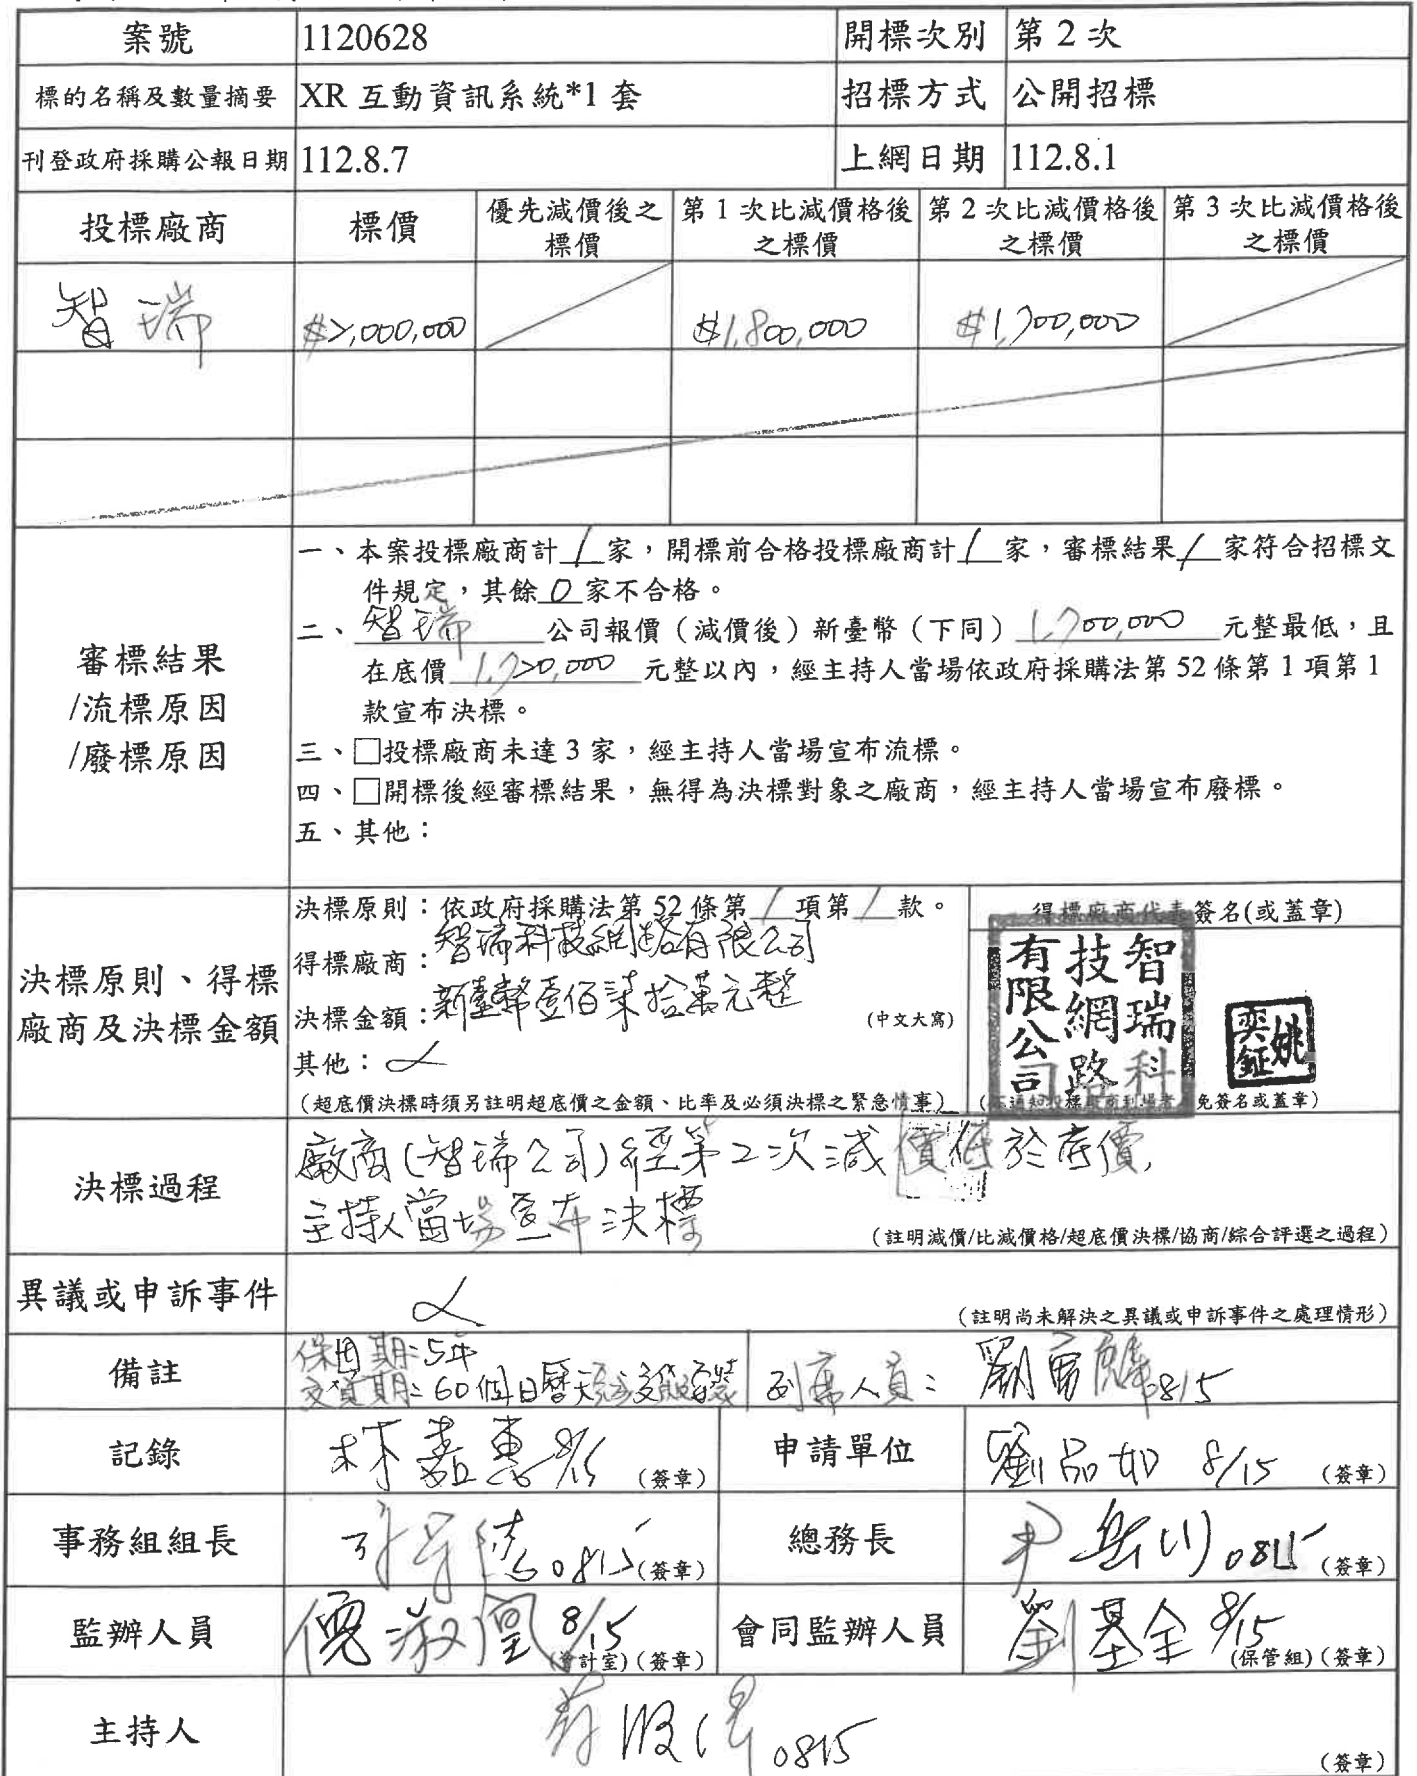 案號 1120628 開標次別 第 2 次
標的名稱及數量摘要 XR 互動資訊系統*1 套 招標方式 公開招標
刊登政府採購公報日期 112.8.7 上網日期 112.8.1
投標廠商 標價 優先減價後之標價 第 1 次比減價格後之標價 第 2 次比減價格後之標價 第 3 次比減價格後之標價
智瑞 $2,000,000 $1,800,000 $1,700,000
審標結果
/流標原因
/廢標原因
一、本案投標廠商計 1 家,開標前合格投標廠商計 1 家,審標結果 1 家符合招標文
件規定,其餘 0 家不合格。
二、智瑞 公司報價(減價後)新臺幣(下同) 1,700,000 元整最低,且
在底價 1,720,000 元整以內,經主持人當場依政府採購法第 52 條第 1 項第 1
款宣布決標。
三、□投標廠商未達 3 家,經主持人當場宣布流標。
四、□開標後經審標結果,無得為決標對象之廠商,經主持人當場宣布廢標。
五、其他:
決標原則、得標
廠商及決標金額
決標原則:依政府採購法第 52 條第 1 項第 1 款。
得標廠商:智瑞科技網路有限公司
決標金額:新臺幣壹佰柒拾萬元整 (中文大寫)
其他:
(超底價決標時須另註明超底價之金額、比率及必須決標之緊急情事)
得標廠商代表簽名(或蓋章)
智瑞科
技網路
有限公司
姚奕鉦
免簽名或蓋章)
決標過程
廠商(智瑞公司)經第2次減價低於底價,
主持人當場宣布決標
(註明減價/比減價格/超底價決標/協商/綜合評選之過程)
異議或申訴事件 (註明尚未解決之異議或申訴事件之處理情形)
備註
保固期:5年
交貨期:60個日曆天
列席人員: 0815
記錄 林嘉惠 8/15 (簽章) 申請單位 劉品如 8/15 (簽章)
事務組組長 0815 (簽章) 總務長 尹岳川 0815 (簽章)
監辦人員 倪淑凰 8/15 (會計室)(簽章) 會同監辦人員 劉基全 8/15 (保管組)(簽章)
主持人 0815 (簽章)